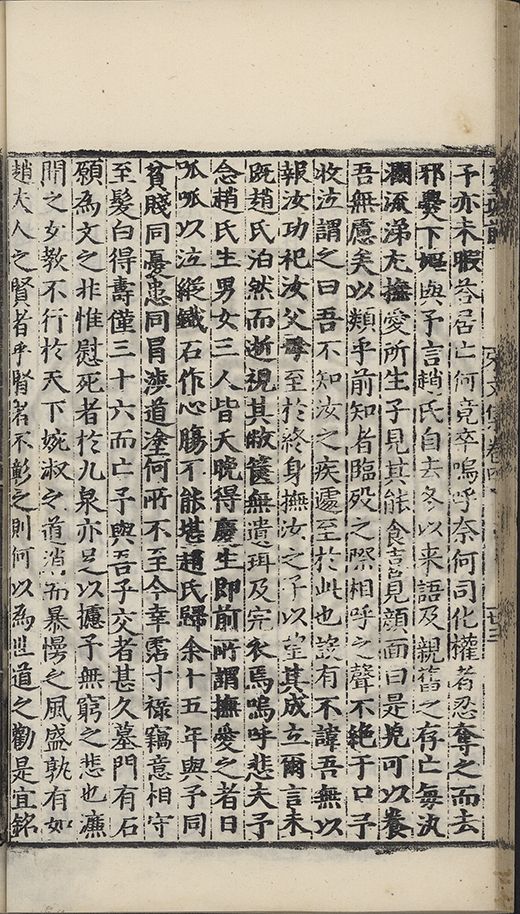 予亦未暇答居亡何竟卒嗚呼奈何司化權者忍奪之而去
邪釁下車與予言趙氏自去冬以来語及親舊之存亡每汍
瀾流涕尤撫愛所生子見其能食喜見顔面曰是児可以養
吾無慮矣以類乎前知者臨殁之際相呼之聲不絶于口予
收泣謂之曰吾不知汝之疾遽至於此也設有不諱吾無以
報汝功祀汝父母至於終身撫汝之子以望其成立爾言未
既趙氏泊然而逝視其敝篋無遺珥及完衣焉嗚呼悲夫予
念趙氏生男女三人皆夭晩得慶生即前所謂撫愛之者日
呱呱以泣縱鐵石作心腸不能堪趙氏歸余十五年與予同
貧賤同憂患同冒涉道塗何所不至今幸霑寸禄竊意相守
至髮白得壽僅三十六而亡予與吾子交者甚久墓門有石
願為文之非惟慰死者於九泉亦足以攄予無窮之悲也濂
聞之女教不行於天下婉淑之道消而暴慢之風盛孰有如
趙夫人之賢者乎賢者不彰之則何以為世道之勸是宜銘
宋文集卷四
廿三